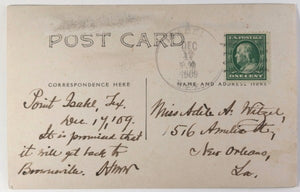 POST CARD
DEC
17
1909
U.S. POSTAGE
ONE CENT
CORRESPONDENCE HERE
NAME AND ADDRESS HERE
Point Isabel, Tx.
Dec 17, '09.
It is promised that
it will get back to
Brownsville.
Miss Adile A. Wetzel
1516 Amelia St,
New Orleans,
La.